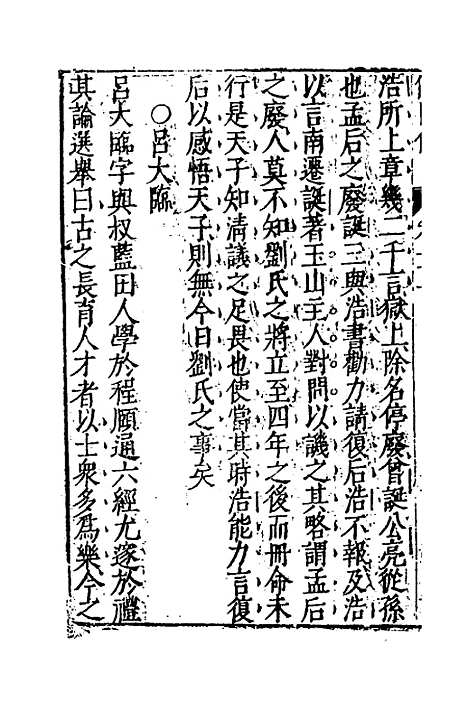 浩所上章幾二千言獄上除名停廢曾誕公亮從孫
也孟后之廢誕三與浩書勸力請復后浩不報及浩
以言南遷誕著玉山主人對問以譏之其略謂孟后
之廢人莫不知劉氏之將立至四年之後而冊命未
行是天子知清議之足畏也使當其時浩能力言復
后以感悟天子則無今日劉氏之事矣
○呂大臨
呂大臨字與叔藍田人學於程頤通六經尤邃於禮
其論選舉曰古之長育人才者以士衆多為樂今之